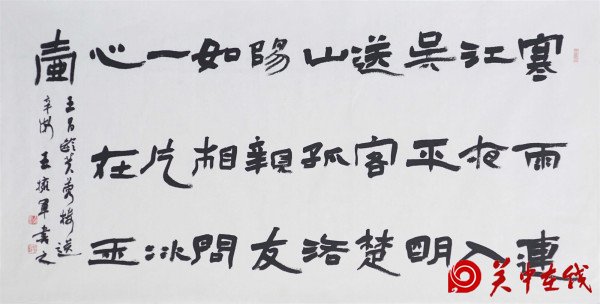 寒雨連
江夜入
吴平明
送客楚
山孤洛
陽親友
如相問
一片冰
心在玉
壺
王昌齡芙蓉樓送
辛漸 王軍書之
关中在线